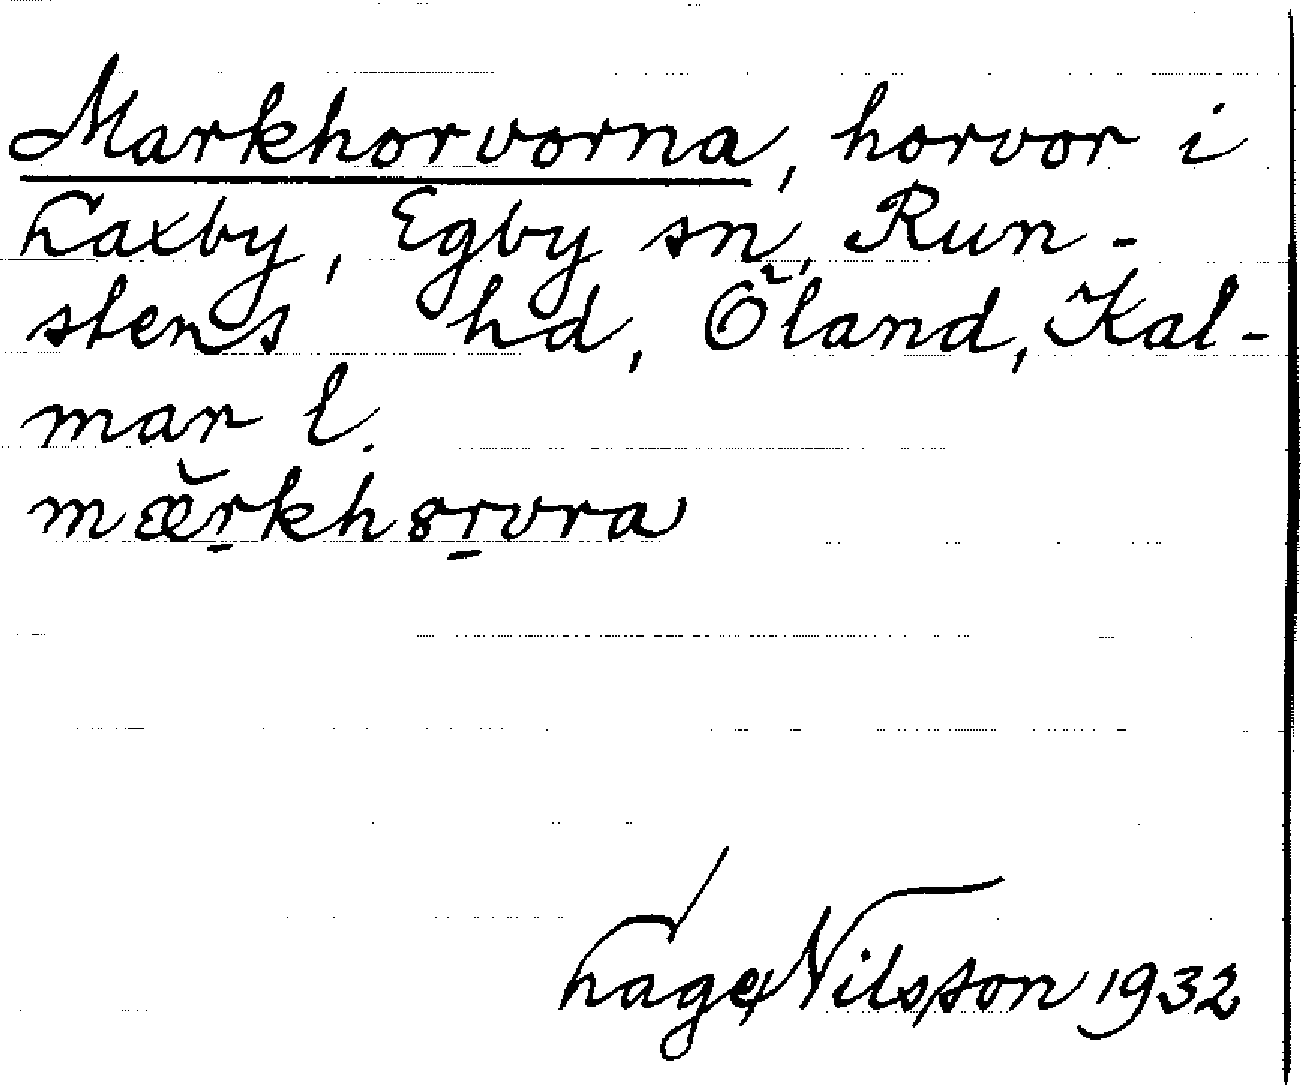 Markhorvorna, horvor i
Laxby, Egby sn, Run-
stens hd, Öland, Kal-
mar l.
mæ̆r̠khɞr̠vra
Lage Nilsson 1932